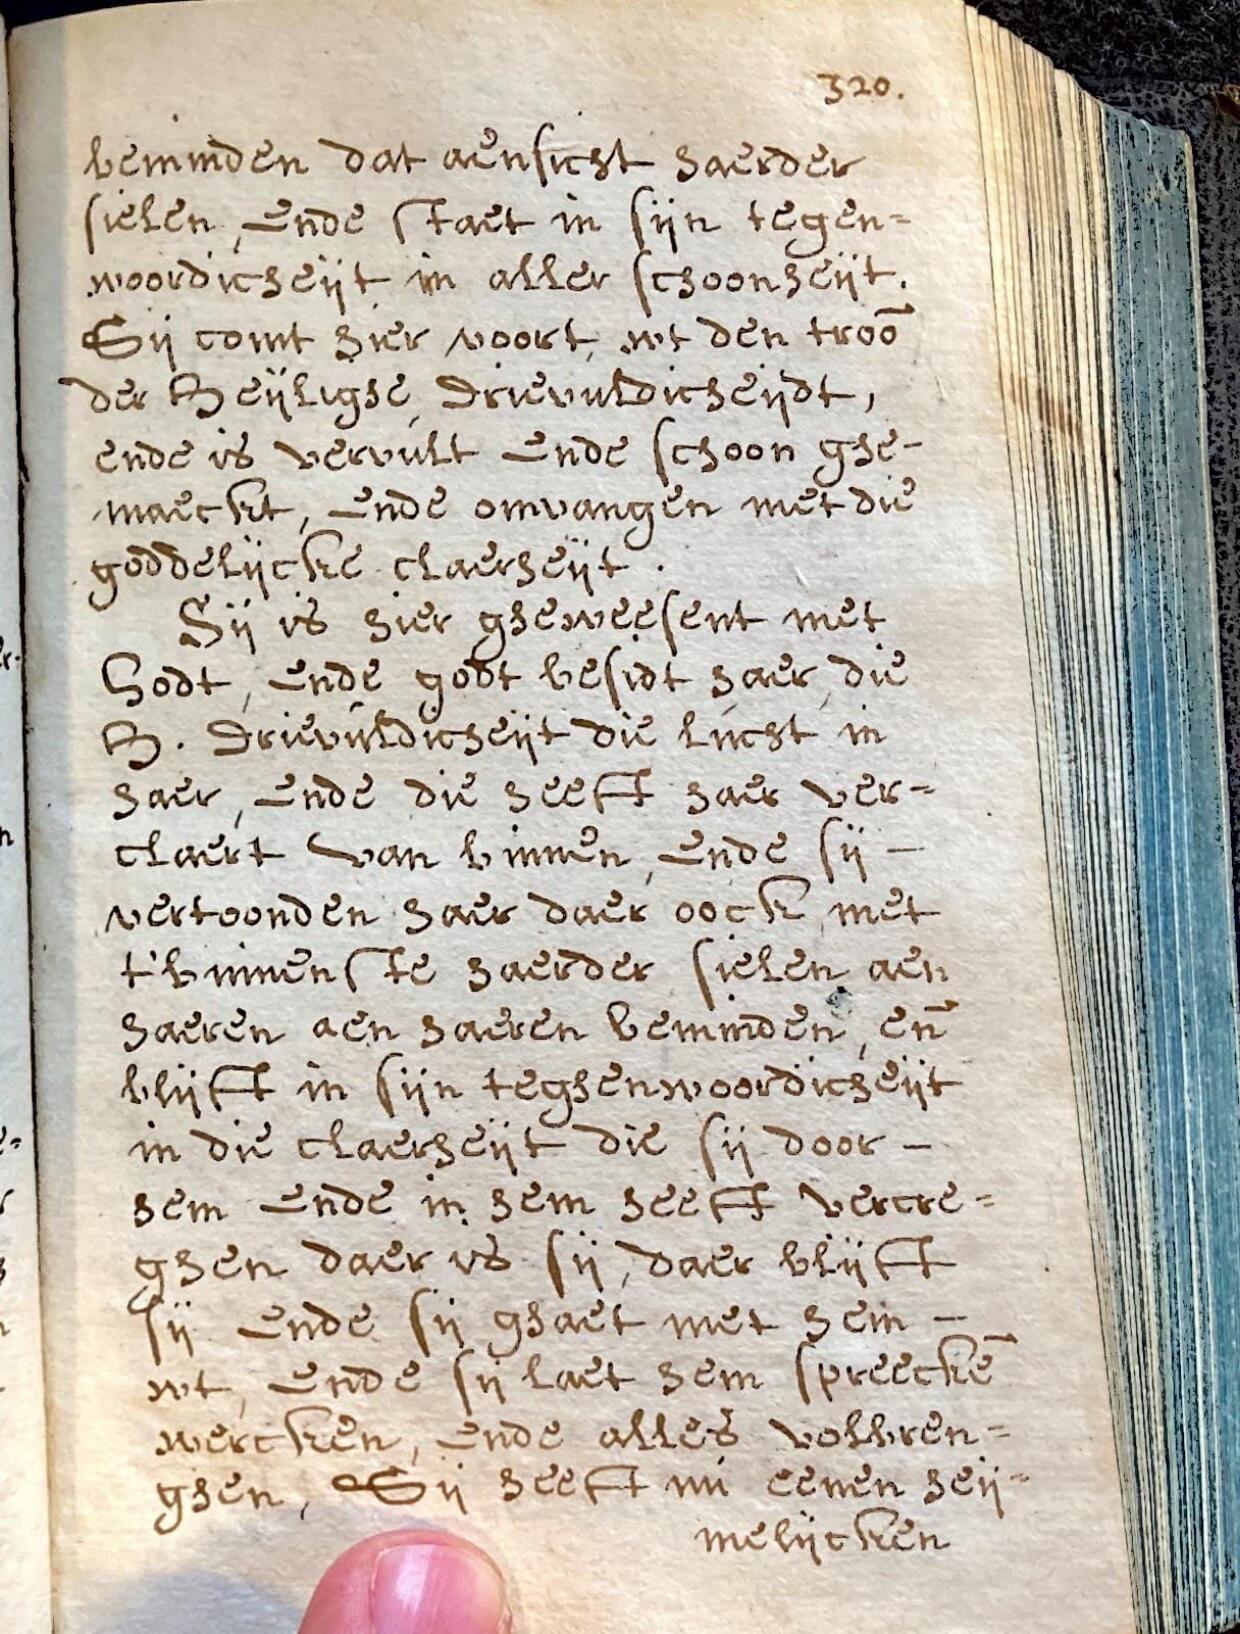 320.
beminden dat aensicht haerder
sielen, ende staet in sijn tegen=
woordicheijt in aller schoonheijt.
Sij comt hier voort, wt den troō
der Heijlighe, Drievuldicheijdt,
ende is vervult ende schoon ghe-
maeckt, ende omvangen met die
goddelijcke claerheijt.
Sij is hier gheweesent met
Godt, ende godt besidt haer, die
H. Drievuldicheijt die lucht in
haer, ende die heeft haer ver-
claert van binnen, ende sij -
vertoonden haer daer oock met
t'binnenste haerder sielen aen
haeren aen haeren beminden, en̄
blijft in sijn teghenwoordicheijt
in die claerheijt die sij door -
hem ende in hem heeft vercre=
ghen daer is sij, daer blijft
sij ende sij ghaet met hem -
wt, ende sij laet hem spreeckē
wercken, ende alles volbren=
ghen, Sij heeft nu eenen heij=
melijcken